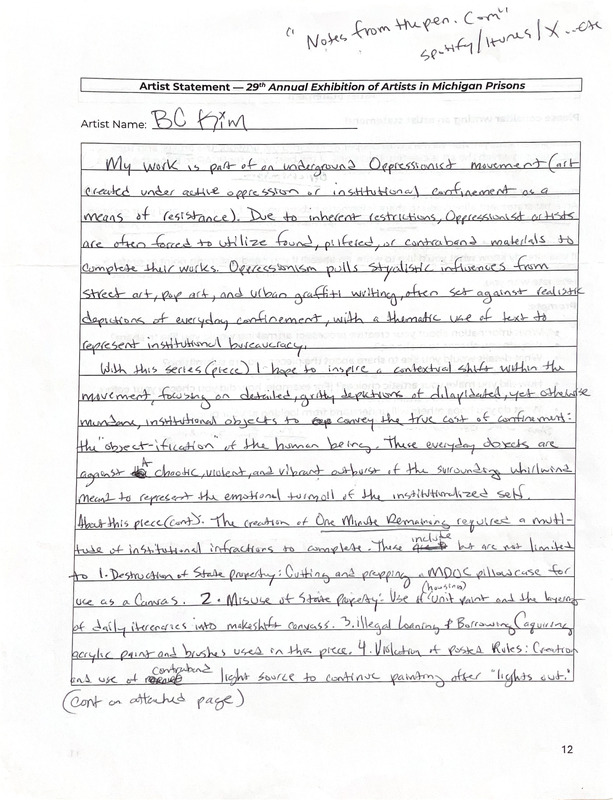 "Notes from the pen. Com"
spotify/Itunes/X...etc
Artist Statement — 29th Annual Exhibition of Artists in Michigan Prisons
Artist Name: BC Kim
My work is part of an underground Oppressionist movement (art
created under active oppression or institutional confinement as a
means of resistance). Due to inherent restrictions, Oppressionist artists
are often forced to utilize found, pilfered, or contraband materials to
complete their works. Oppressionism pulls stylistic influences from
street art, pop art, and urban graffiti writing, often set against realistic
depictions of everyday confinement, with a thematic use of text to
represent institutional bureaucracy.
With this series (piece) I hope to inspire a contextual shift within the
movement, focusing on detailed, gritty depictions of dilapidated, yet otherwise
mundane, institutional objects to convey the true cost of confinement:
the "object-ification" of the human being. These everyday objects are
against A chaotic, violent, and vibrant outburst of the surrounding whirlwind
meant to represent the emotional turmoil of the institutionalized self.
About this piece (cont): The creation of One Minute Remaining required a multi-
tude of institutional infractions to complete. These include but are not limited
to 1. Destruction of State property: Cutting and prepping a MDOC pillowcase for
use as a Canvas. 2. Misuse of State Property: Use of (housing) unit paint and the layering
of daily iteneraries into makeshift canvass. 3. Illegal Loaning & Borrowing (aquiring
acrylic paint and brushes used in this piece. 4. Violation of Posted Rules: Creation
and use of contraband light source to continue painting after "lights out."
(cont on attached page)
12